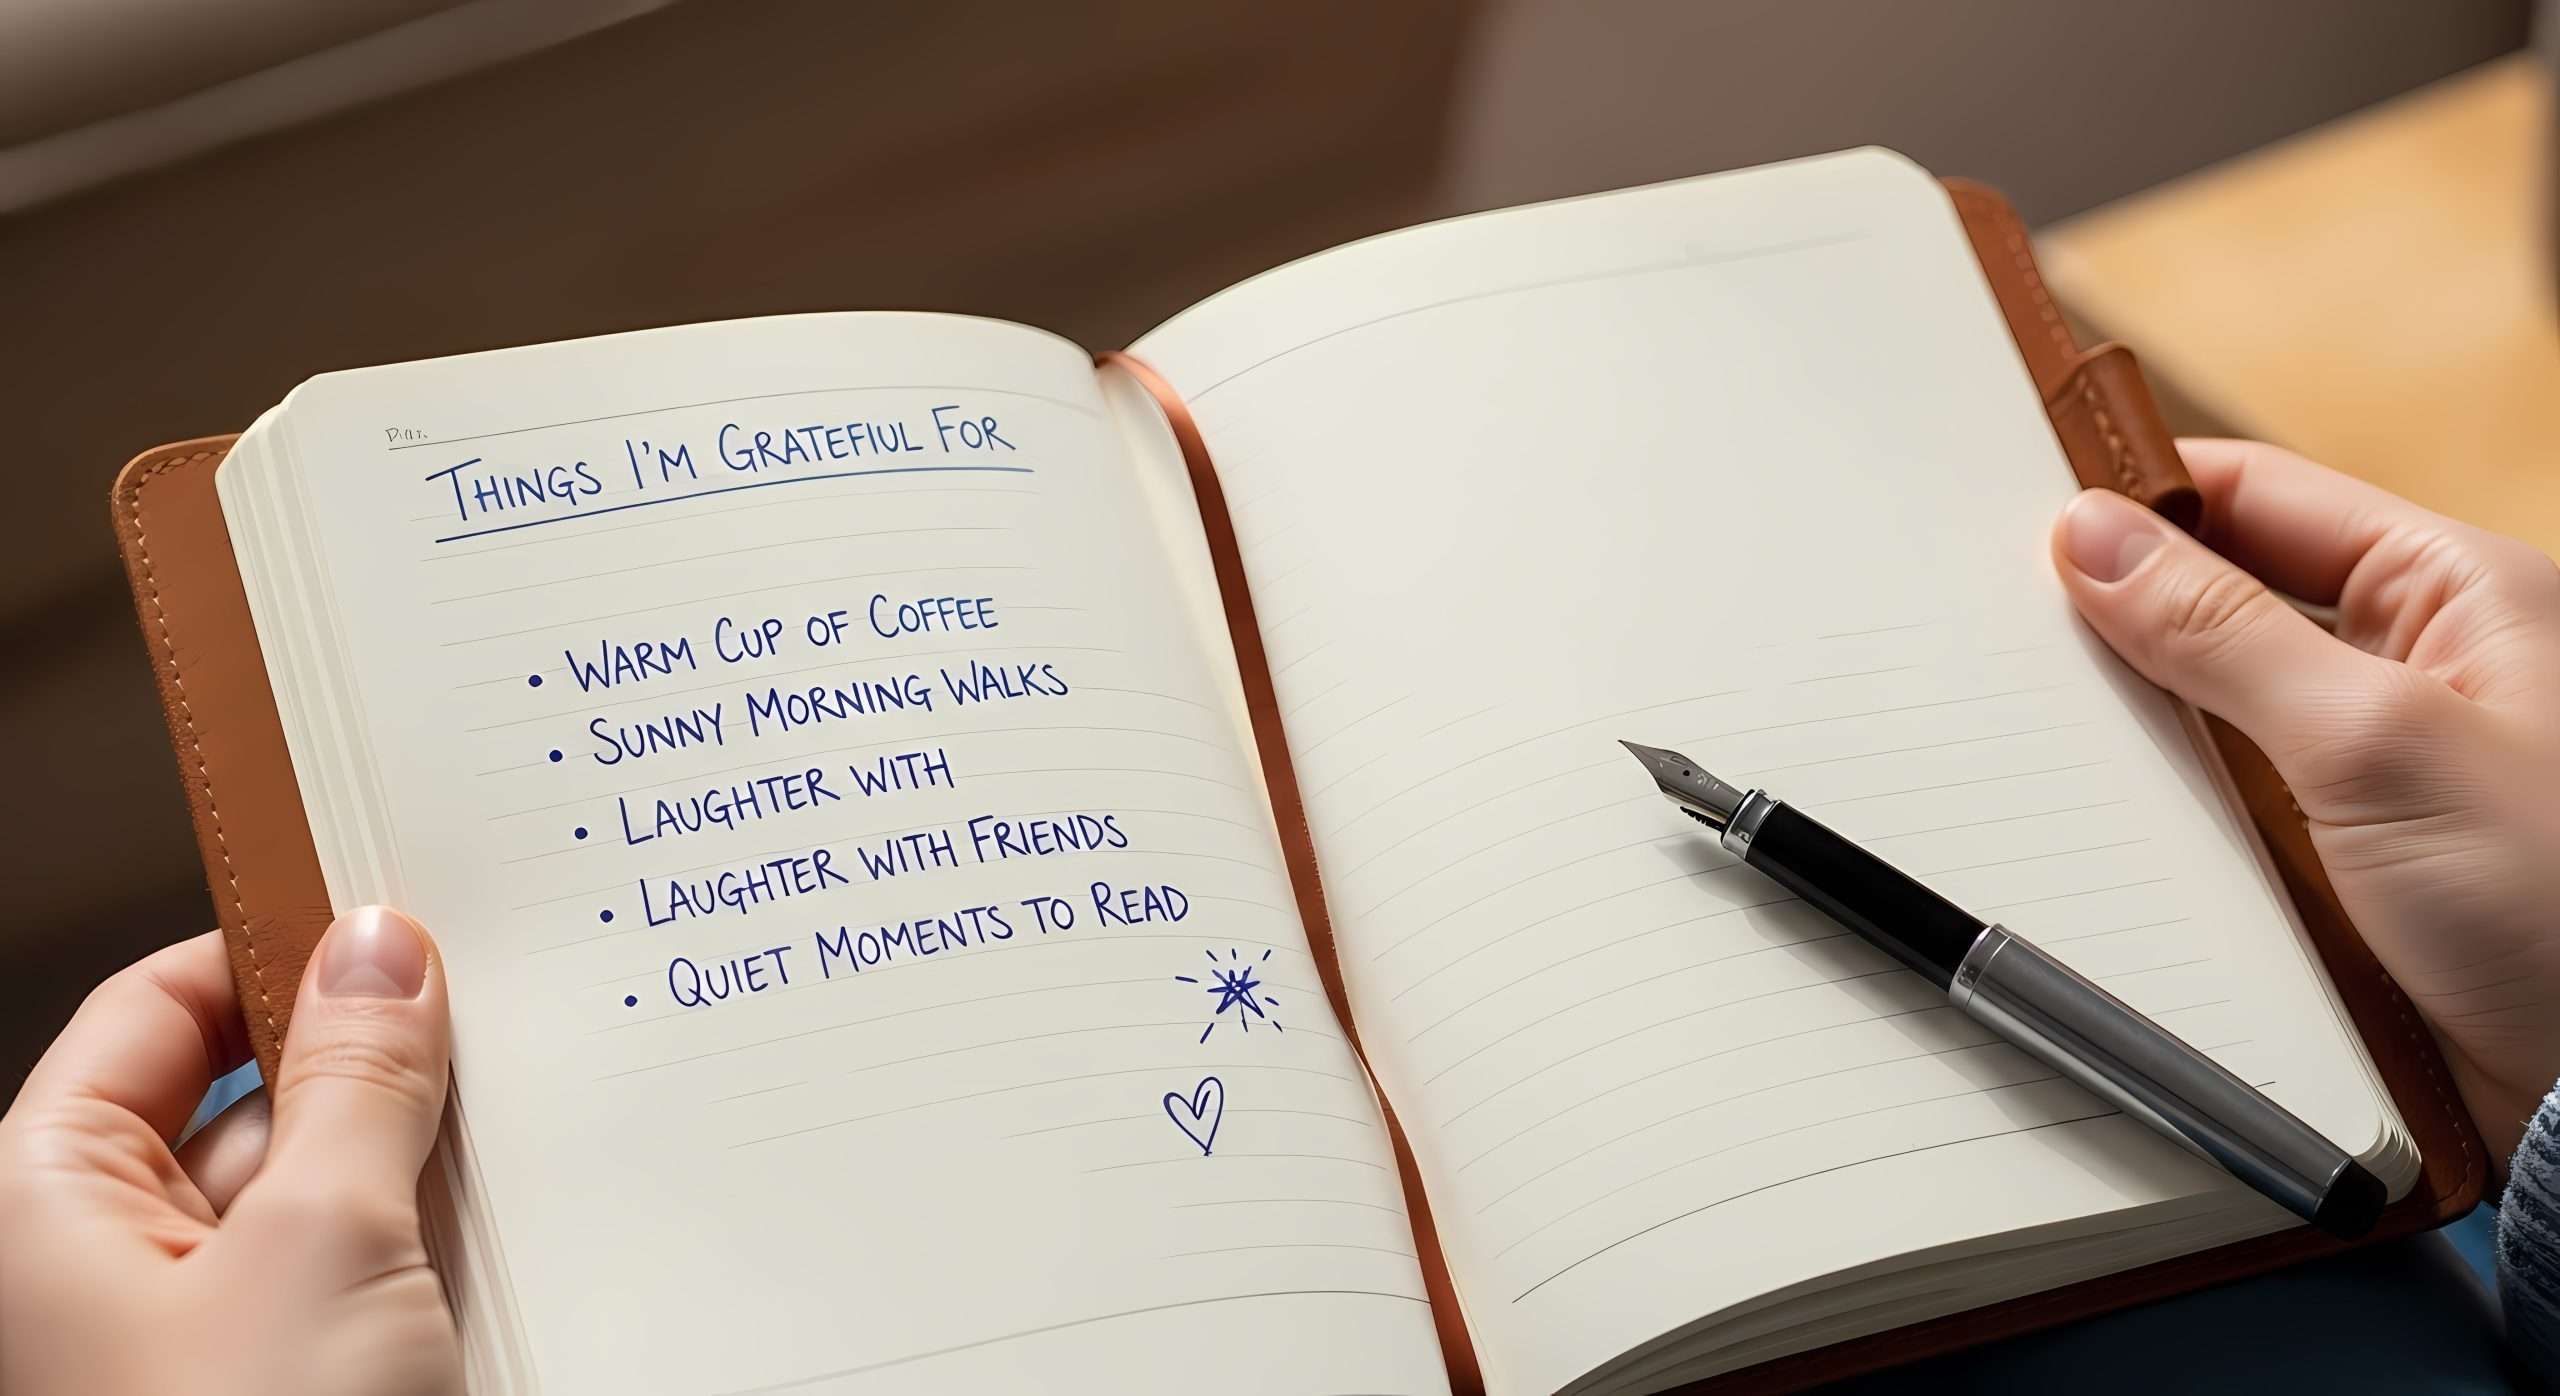 THINGS I'M GRATEFUL FOR
• WARM CUP OF COFFEE
• SUNNY MORNING WALKS
• LAUGHTER WITH
• LAUGHTER WITH FRIENDS
• QUIET MOMENTS TO READ